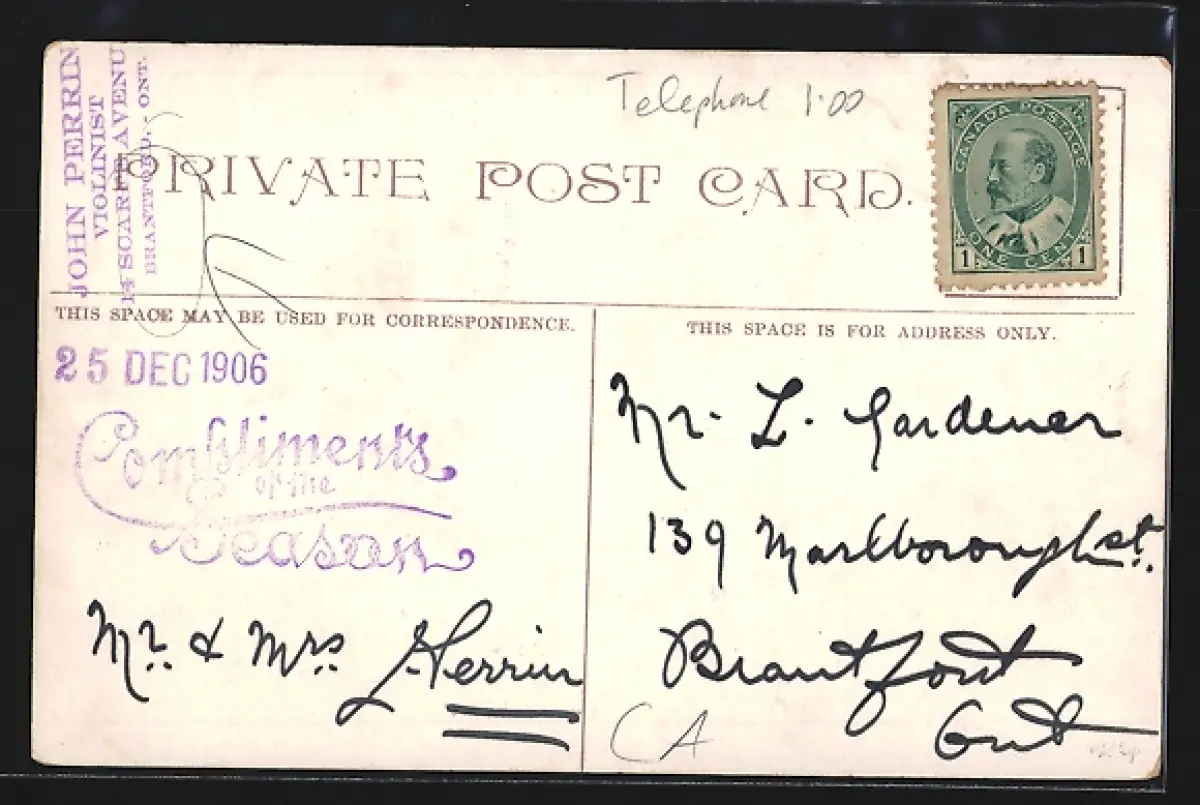 JOHN PERRIN
VIOLINIST
14 SCARFE AVENU
BRANTFORD, - ONT.
Telephone 1.00
PRIVATE POST CARD.
CANADA POSTAGE
ONE CENT
1 1
THIS SPACE MAY BE USED FOR CORRESPONDENCE.
25 DEC 1906
Compliments
of the
Season
Mr. & Mrs J Perrin
THIS SPACE IS FOR ADDRESS ONLY.
Mr. L. Gardener
139 Marlborough st.
Brantford
Ont
CA